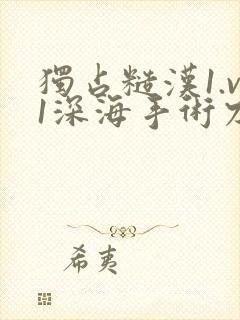 獨占糙漢1.v
1深海手術刀
希夷